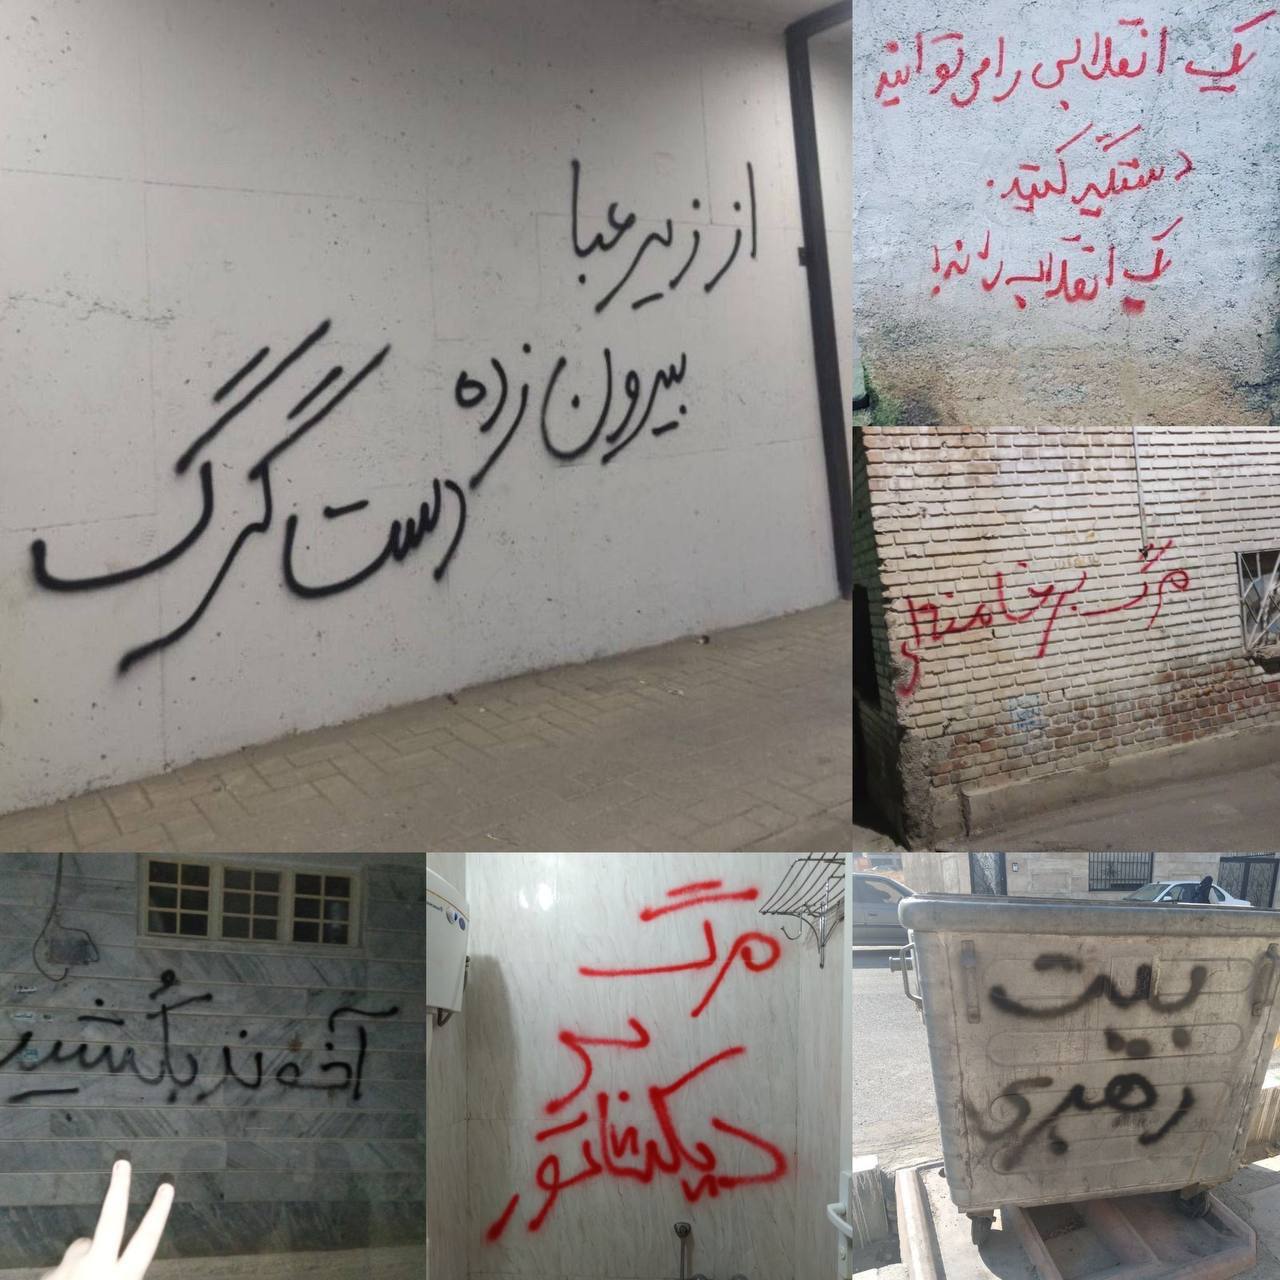 از زیر عبا
بیرون زده
دستا گرگ
یک انقلابی را می توانید
دستگیر کنید.
یک انقلاب را نه!
مرگ بر خامنه‌ای
آخوند بکُشید
مرگ
بر
دیکتاتور
بیت
رهبری